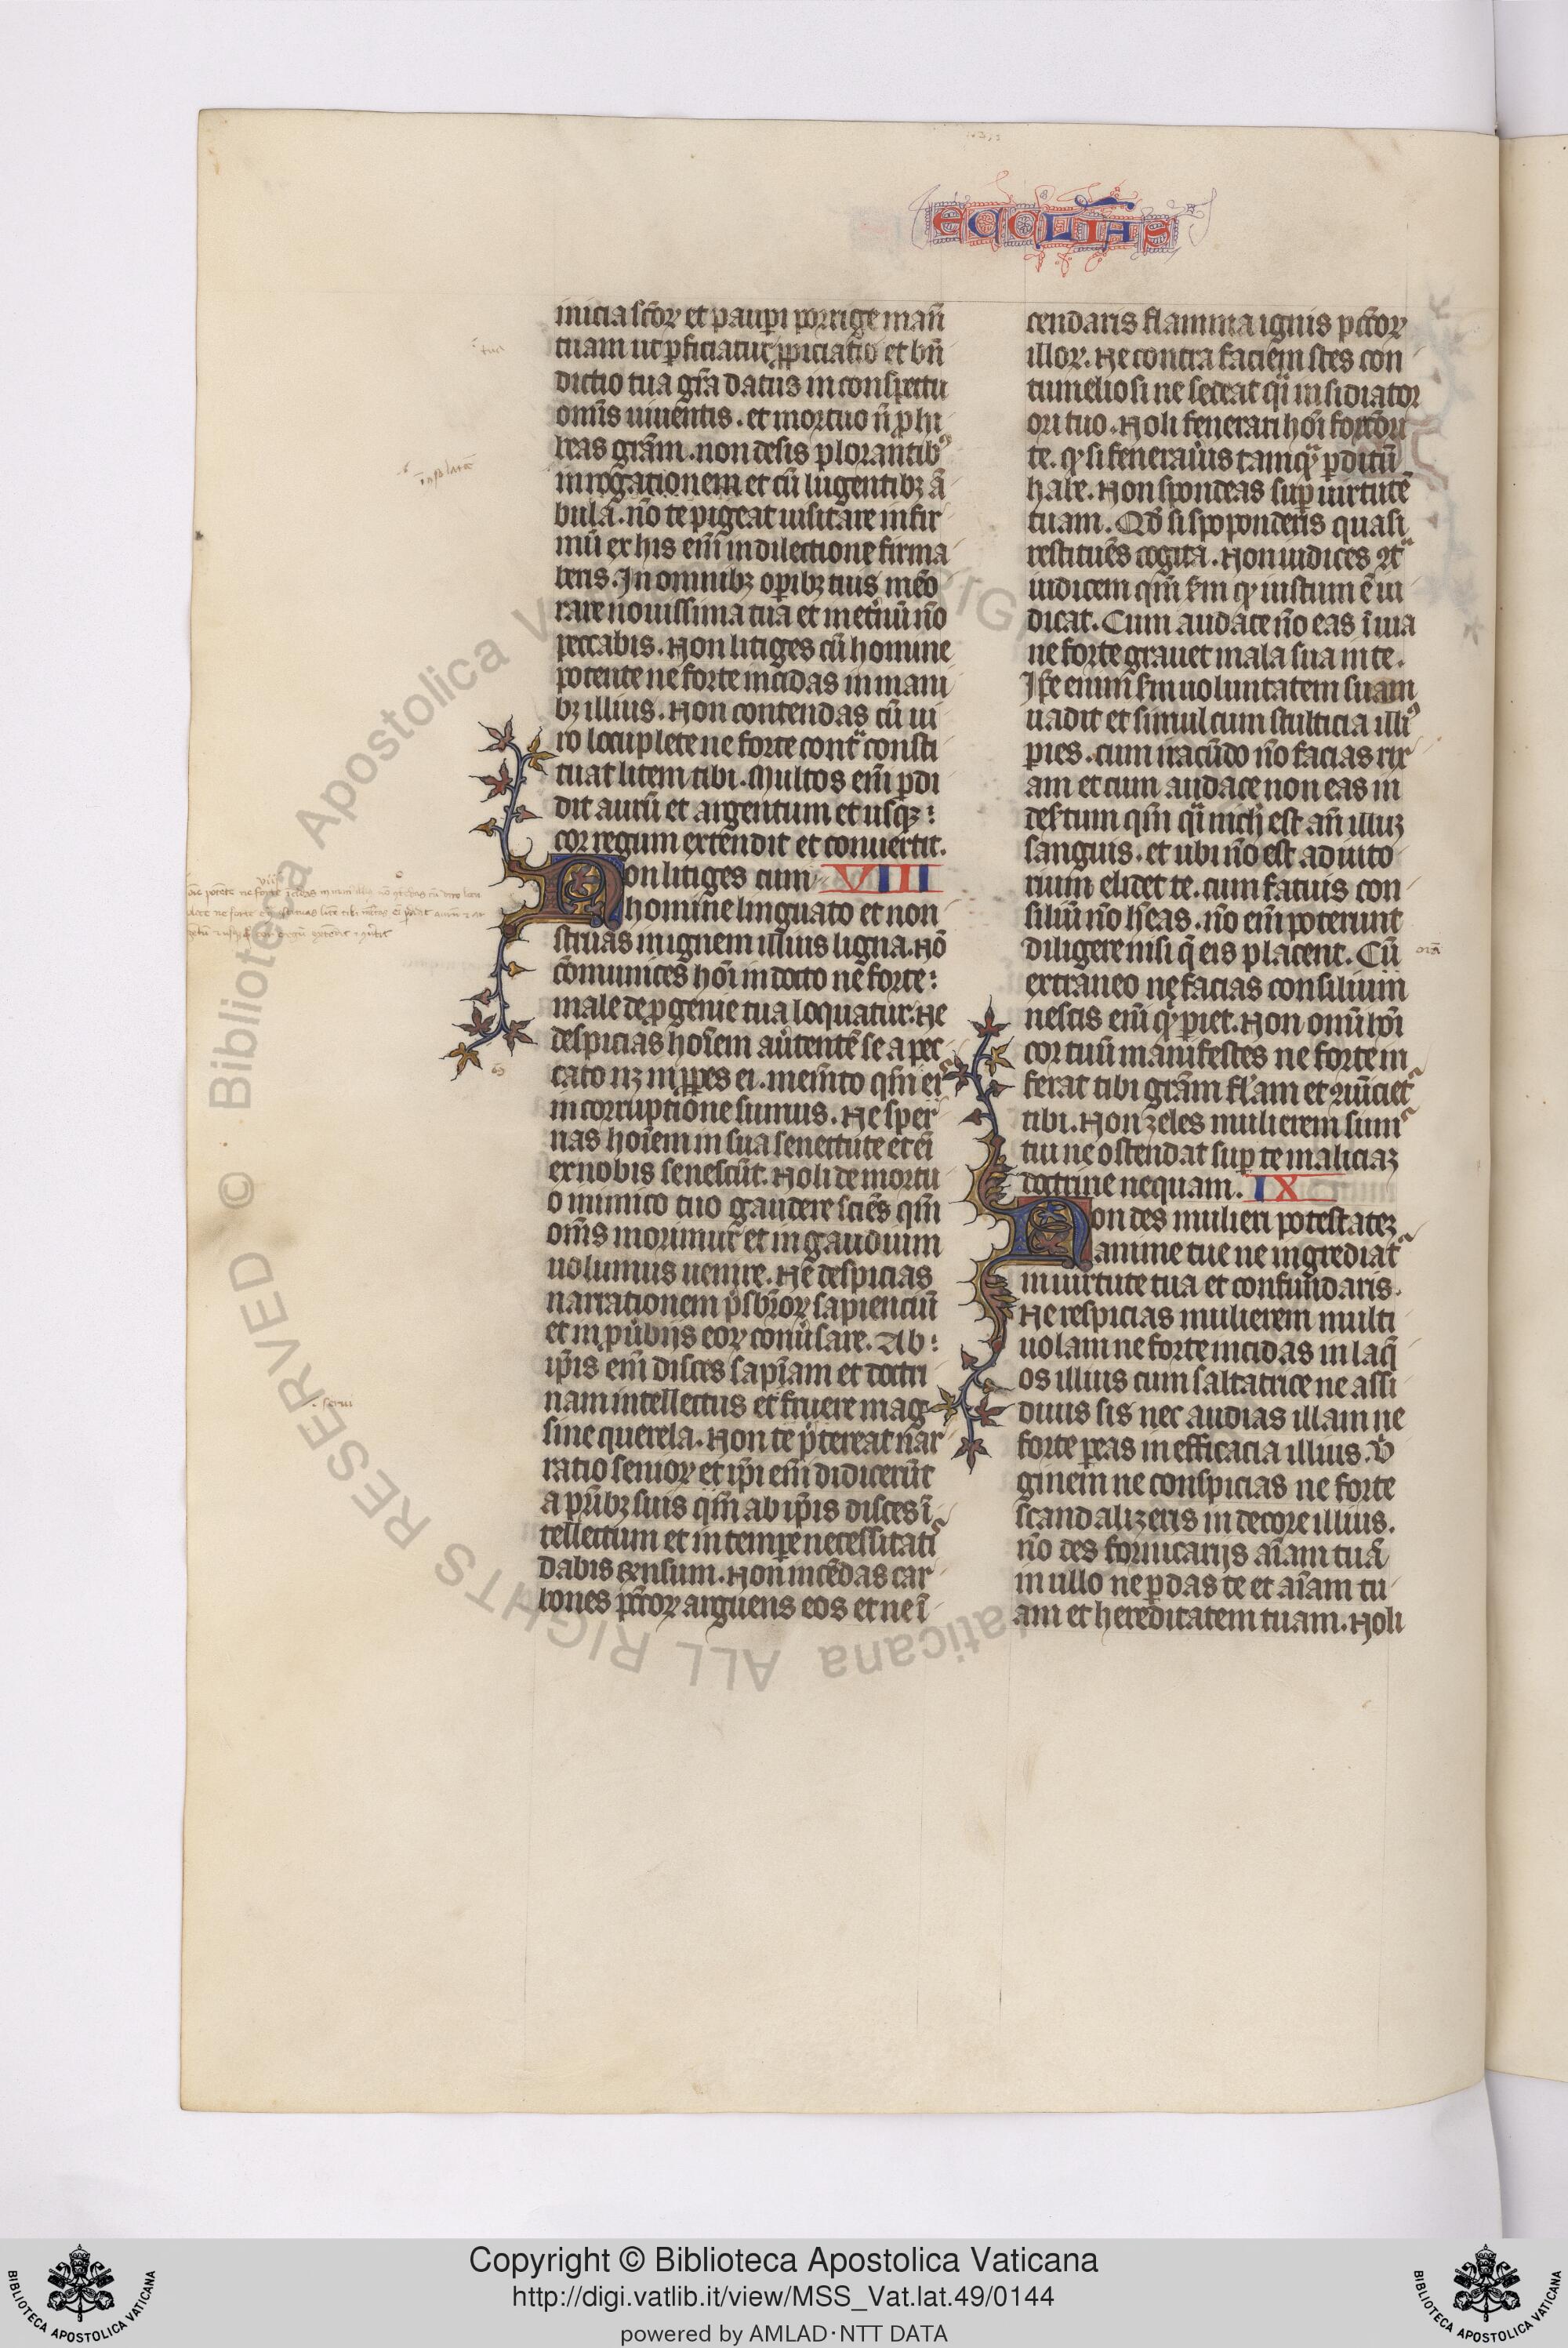 ECCLIAS
inicia scōꝝ et pauꝑi porrige manū
tuam ut ꝑficiatur ꝓpiciatio et bn̄
dictio tua gr̄a datus in conspectu
omīs uiuentis. et mortuo n̄ ꝓhi
beas grām. non desis plorantibꝰ
in rogationem et cū lugentibꝫ ā
bula. nō te pigeat uisitare infir
mū ex his em̄ in dilectione firma
beris. In omnibꝫ oꝑibꝫ tuis memō
rare nouissima tua et in etn̄ū nō
peccabis. Non litiges cū homine
potente ne forte incidas in mani
bꝫ illius. Non contendas cū ui
ro locuplete ne forte contͣ consti
tuat litem tibi. Multos em̄ ꝑdi
dit aurū et argentum et usqꝫ
cor regum extendit et conuertit.
Non litiges cum VIII
homine linguato et non
struas in ignem illius ligna. Nō
cōmunices hoī indocto ne forte
male de ꝓgenie tua loquatur. Ne
despicias hoīem aūtentē se a pec
cato nꝫ inꝓpes ei. memēto qm̄
in corruptione sumus. Ne sper
nas hoīem in sua senectute etem̄
ex nobis senescūt. Noli de mortu
o inimico tuo gaudere sciēs qm̄
om̄s morimur et in gaudium
uolumus uenire. Ne despicias
narrationem p̄sbr̄oꝝ sapienciū
et in ꝓūbijs eoꝝ conūsare. Ab
ip̄is em̄ disces sapiām et doctri
nam intellectus et fruere mag
sine querela. Non te p̄tereat nar
ratio senioꝝ et ip̄i em̄ didicerūt
a pr̄ibꝫ suis qm̄ ab ip̄is disces ī
tellectum et in temꝑe necessitatiꝰ
dabis sensum. Non incēdas car
bones pc̄coꝝ arguens eos et ne ī
cendaris flamma ignis pc̄coꝝ
illoꝝ. Ne contra faciem stes con
tumeliosi ne sedeat qͣi insidiator
ori tuo. Noli fenerari hoī forciori
te. qꝫ si feneraūis tamqͣ ꝑditū
habe. Non spondeas suꝑ uirtutē
tuam. Qd̄ si spoponderis quasi
restituēs cogita. Non iudices 9tͣ
iudicem qm̄ sm̄ qꝫ iustum ē iu
dicat. Cum audace nō eas ī uia
ne forte grauet mala sua in te.
Ip̄e enim sm̄ uoluntatem suam
uadit et simul cum stulticia illiꝰ
ꝑies. cum iracūdo nō facias rix
am et cum audace non eas in
des̄tum qm̄ qͣi nich̄ est an̄ illuꝫ
sanguis. et ubi nō est adiuto
rium elidet te. cum fatuis con
siliū nō hēas. nō em̄ poterunt
diligere nisi q̄ eis placent. Cū
extraneo ne facias consilium
nescis em̄ qͥd ꝑiet. Non om̄i hoī
cor tuū manifestes ne forte in
ferat tibi grām fl̄am et 9uicietᷣ
tibi. Non zeles mulierem sinuꝰ
tui ne ostendat suꝑ te maliciaꝫ
doctrine nequam. IX
Non des mulieri potestateꝫ
anime tue ne ingrediatᷣ
in uirtute tua et confundaris.
Ne respicias mulierem multi
uolam ne forte incidas in laq̄
os illius cum saltatrice ne assi
duus sis nec audias illam ne
forte ꝑeas in efficacia illius. Vͥ
ginem ne conspicias ne forte
scandalizeris in decore illius.
nō des fornicarijs aīam tuā
in ullo ne ꝑdas te et aīam tu
am et hereditatem tuam. Noli
© Biblioteca Apostolica Vaticana ALL RIGHTS RESERVED
Copyright © Biblioteca Apostolica Vaticana
http://digi.vatlib.it/view/MSS_Vat.lat.49/0144
powered by AMLAD·NTT DATA
BIBLIOTECA APOSTOLICA VATICANA
BIBLIOTECA APOSTOLICA VATICANA